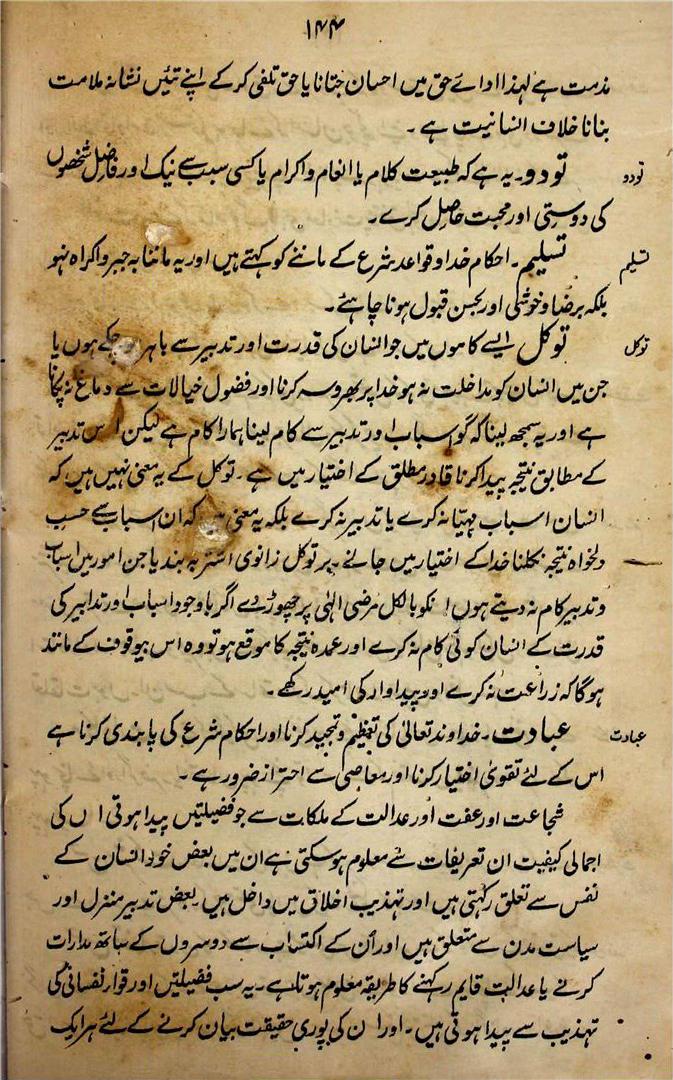 ۱۴۴
مذمت ہے لہذا ادائے حق میں احسان جتانا یا حق تلفی کرکے اپنے تئیں نشانہ ملامت
بنانا خلاف انسانیت ہے ۔
تودو
تودو۔ یہ ہے کہ طبیعت کلام یا انعام و اکرام یا کسی سبب سے نیک اور فاضل شخصوں
کی دوستی اور محبت حاصل کرے۔
تسلیم
تسلیم۔ احکام خدا و قواعد شرع کے ماننے کو کہتے ہیں اور یہ ماننا بہ جبر و اکراہ نہو
بلکہ برضا و خوشی اور بحسن قبول ہونا چاہئے۔
توکل
توکل ایسے کاموں میں جو انسان کی قدرت اور تدبیر سے باہر ہوچکے ہوں یا
جن میں انسان کو مداخلت نہ ہو خدا پر بھروسہ کرنا اور فضول خیالات سے دماغ نہ پکانا
ہے اور یہ سمجھ لینا کہ گو اسباب اور تدبیر سے کام لینا ہمارا کام ہے لیکن اس تدبیر
کے مطابق نتیجہ پیدا کرنا قادر مطلق کے اختیار میں ہے ۔ توکل کے یہ معنی نہیں ہیں کہ
انسان اسباب مہیّا نہ کرے یا تدبیر نہ کرے بلکہ یہ معنی ہیں کہ ان اسباب سے حسب
دلخواہ نتیجہ نکلنا خدا کے اختیار میں جانے ۔ بر توکل زانوی اشتر بہ بند یا جن امور میں اسباب
و تدبیر کام نہ دیتے ہوں انکو بالکل مرضی الٰہی پر چھوڑ دے اگر باوجود اسباب اور تدابیر کی
قدرت کے انسان کوئی کام نہ کرے اور عمدہ نتیجہ کا موقع ہو تو وہ اس بیوقوف کے مانند
ہوگا کہ زراعت نہ کرے اور پیداوار کی امید رکھے۔
عبادت
عبادت۔ خداوند تعالیٰ کی تعظیم و تمجید کرنا اور احکام شرع کی پابندی کرنا ہے
اس کے لئے تقویٰ اختیار کرنا اور معاصی سے احتراز ضرور ہے ۔
شجاعت اور عفت اور عدالت کے ملکات سے جو فضیلتیں پیدا ہوتی ا ں کی
اجمالی کیفیت ان تعریفات سے معلوم ہوسکتی ہے ان میں بعض خود انسان کے
نفس سے تعلق رکھتی ہیں اور تہذیب اخلاق میں داخل ہیں بعض تدبیر منزل اور
سیاست مدن سے متعلق ہیں اور اُن کے اکتساب سے دوسروں کے ساتھ مدارات
کرنے یا عدالت قایم رکھنے کا طریقہ معلوم ہوتا ہے۔ یہ سب فضیلتیں اور قوار نفسانی کی
تہذیب سے پیدا ہوتی ہیں ۔ اور ان کی پوری حقیقت بیان کرنے کے لئے ہر ایک